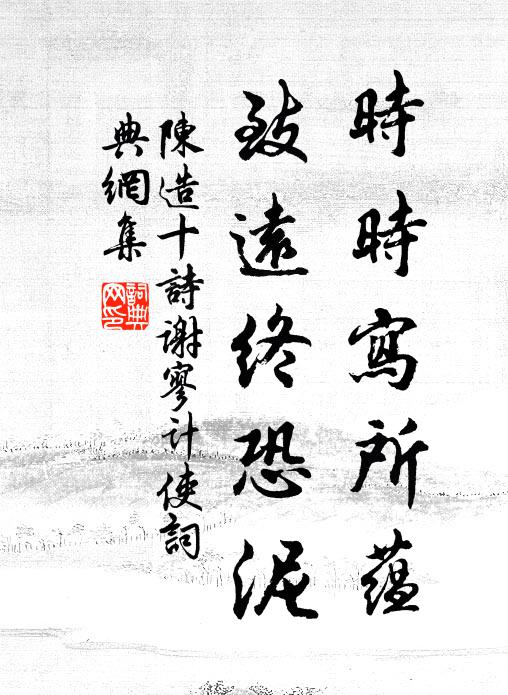 時時寫所蘊
致遠終恐泥
陳造十詩謝寥計使詞
典網集
詞典
网印